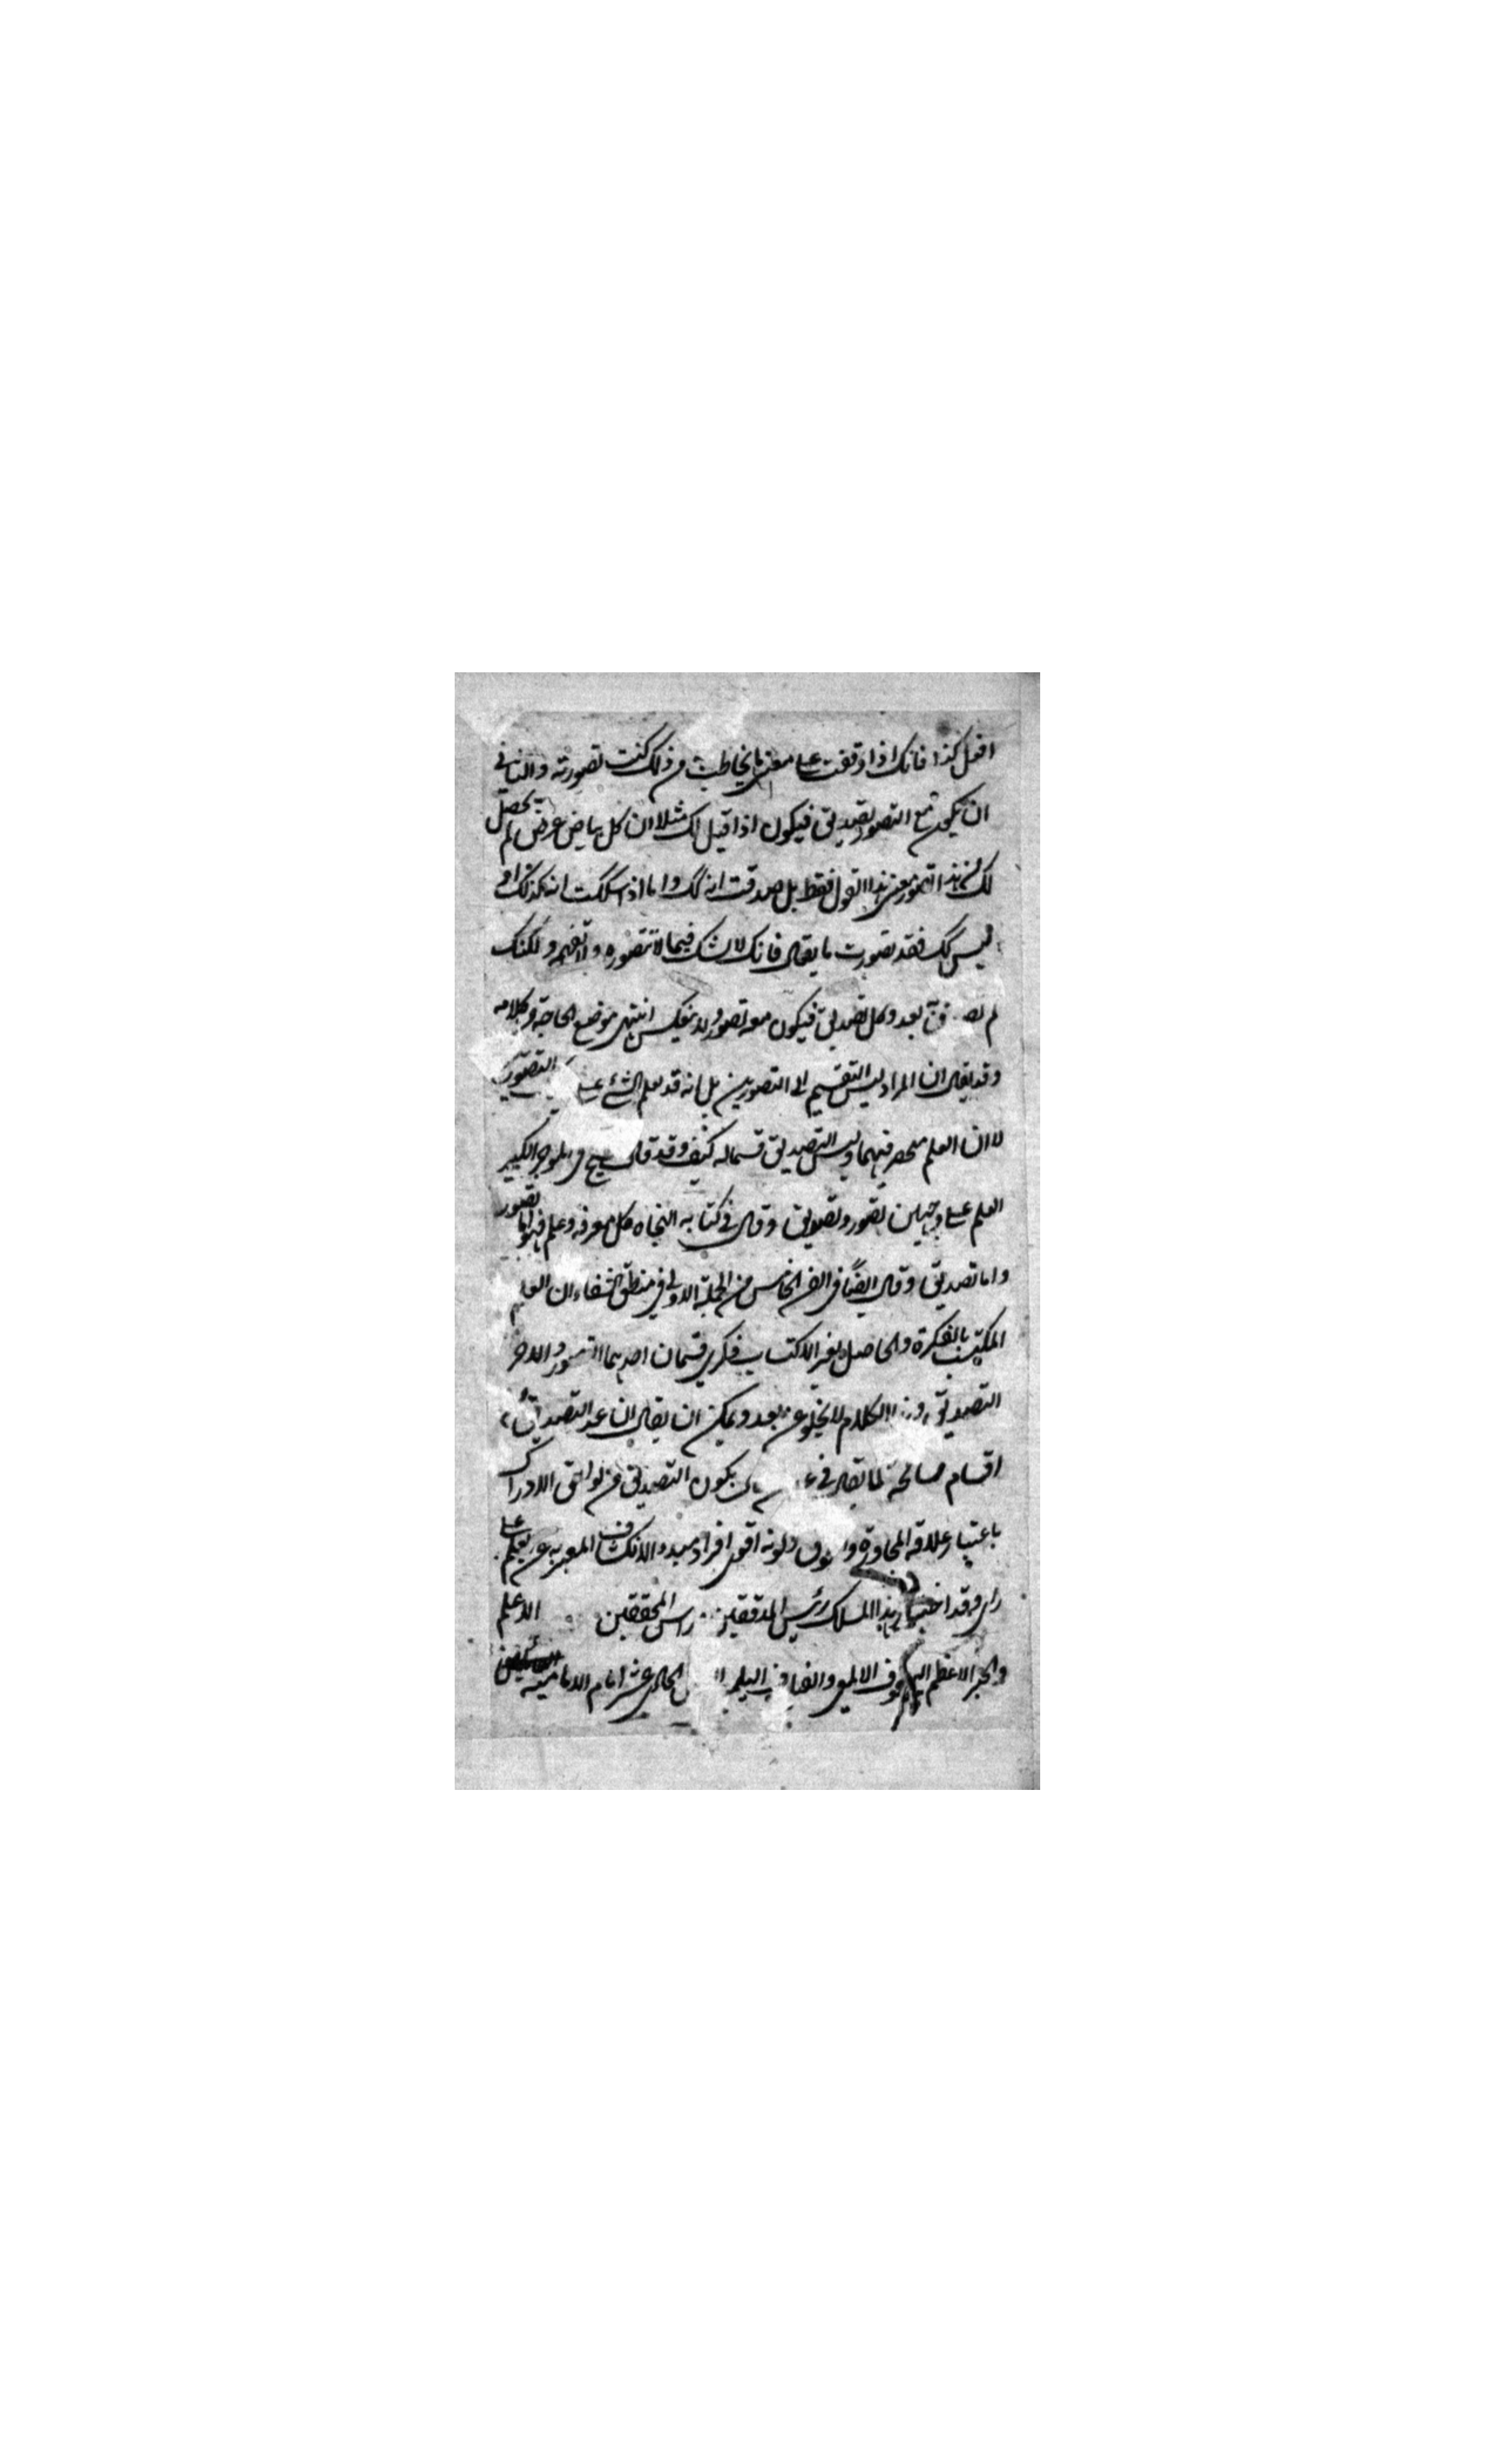 افعل كذا فانك اذا وقفت على معنى ما يخاطب من ذلك كنت تصورته والثاني
ان يكون مع التصور تصديق فيكون اذا قيل لك مثلا ان كل بياض عرض لم يحصل
لك من هذا تصور معنى هذا القول فقط بل صدقت انه كك واما اذا شككت انه كذلك او
ليس كك فقد تصورت ما يقال فانك لا تشك فيما لا تتصوره ولا تفهمه ولكنك
لم تصدق بعد وكل تصديق فيكون معه تصور ولا ينعكس انتهى موضع الحاجة من كلامه
وقد يقال ان المراد ليس التقسيم الى التصورين بل انه قد يعلم الشئ على التصورين
لا ان العلم منحصر فيهما وليس التصديق قسما له كيف وقد قال الشيخ في الموجز الكبير
العلم على وجهين تصور وتصديق وقال في كتابه النجاه كل معرفه وعلم فهو اما تصور
واما تصديق وقال ايضا في الفن الخامس من الجملة الاولى في منطق الشفاء ان العلم
المكتسب بالفكرة والحاصل بغير اكتساب فكري قسمان احدهما التصور والاخر
التصديق وهذا الكلام لا يخلو عن بعد ويمكن ان يقال ان عد التصديق
اقسام مسامحة كما يقال في يكون التصديق من لواحق الادراك
باعتبار علاقه المجاورة وكونه اقوى افراد مبدء الانكشاف المعبر به عن العلم على
راى وقد اختار هذا المسلك رئيس المدققين راس المحققين الاعلم
والحبر الاعظم الالمعى الحادى عشر امام الامامية